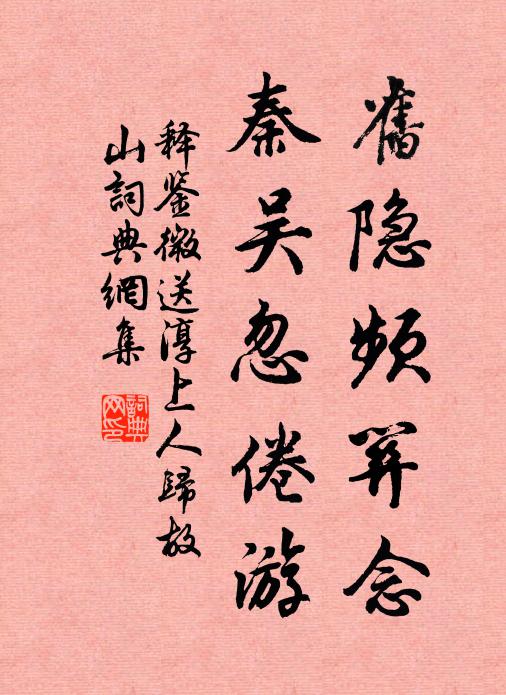 舊隐频念
秦吴忽倦游
释鉴微送淳上人歸故
山詞典網集
詞典
网印